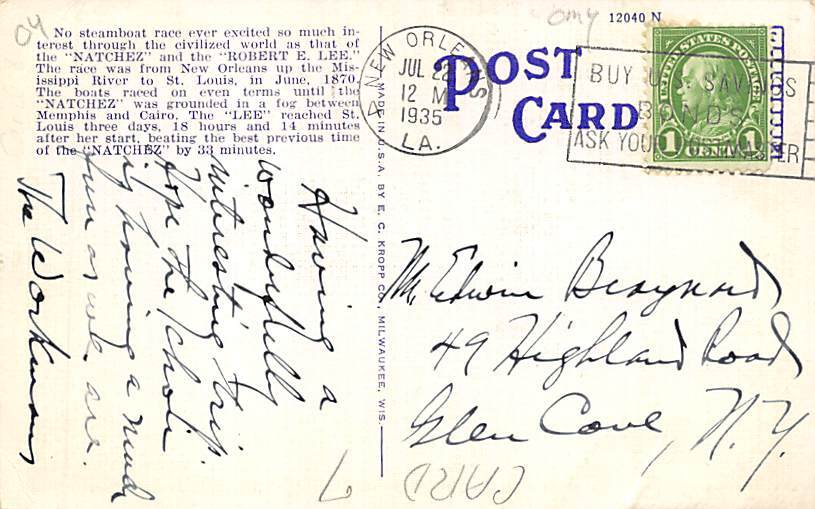 No steamboat race ever excited so much in-
terest through the civilized world as that of
the "NATCHEZ" and the "ROBERT E. LEE."
The race was from New Orleans up the Mis-
sissippi River to St. Louis, in June, 1870.
The boats raced on even terms until the
"NATCHEZ" was grounded in a fog between
Memphis and Cairo. The "LEE" reached St.
Louis three days, 18 hours and 14 minutes
after her start, beating the best previous time
of the "NATCHEZ" by 33 minutes.
Having a
wonderfully
interesting trip.
Hope the Choir
is having a much
fun as we are.
The Workmans
MADE IN U.S.A. BY E. C. KROPP CO., MILWAUKEE, WIS.
12040 N
POST
CARD
NEW ORLEANS
JUL 22
12 M
1935
LA.
BUY U.S. SAVINGS
BONDS
ASK YOUR POSTMASTER
UNITED STATES POSTAGE
1 1
M. Edwin Braynard
49 Highland Road
Glen Cove, N.Y.
7
CARD